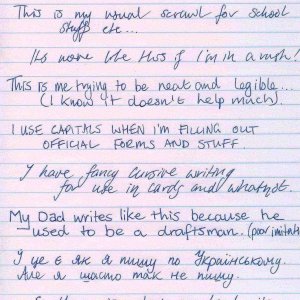 This is my usual scrawl for school
stuff etc...
It's more like this if I'm in a rush!
This is me trying to be neat and legible...
(I know it doesn't help much).
I USE CAPITALS WHEN I'M FILLING OUT
OFFICIAL FORMS AND STUFF.
I have fancy cursive writing
for use in cards and whatnot.
My Dad writes like this because he
used to be a draftsman. (poor imitati
І це є як я пишу по Українському.
Але я щасто так не пишу.